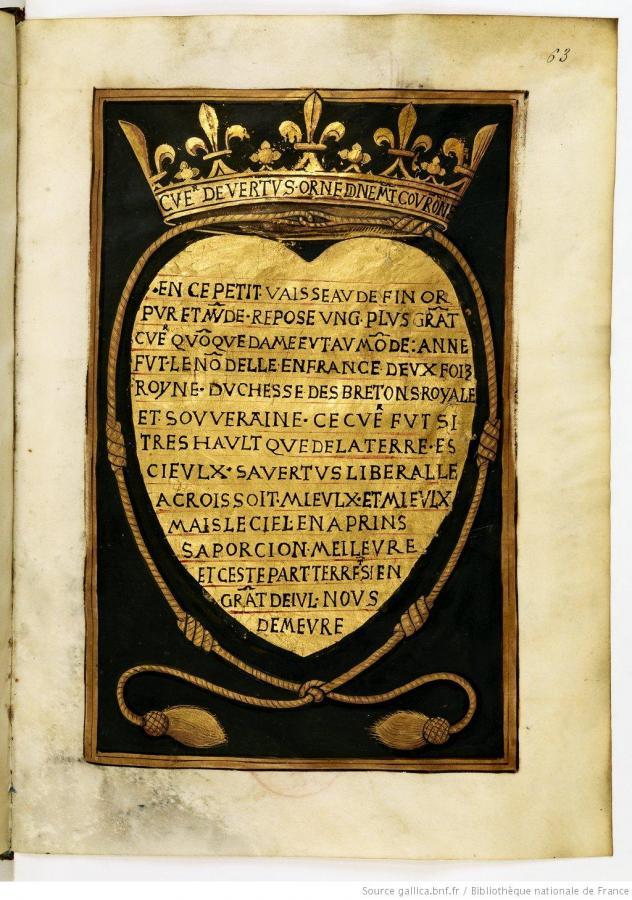 63
CVEᴿ DE VERTVS · ORNE DIGNEMT̃ COVRONE
· EN CE PETIT · VAISSEAV DE FIN OR
PVR ET MV̄DE · REPOSE VNG · PLVS GRÃT
CVEᴿ QVÕQVE DAME EVT AV MÕDE : ANNE
FVT LE NÕ DELLE EN FRANCE DEVX FOIZ
ROYNE · DVCHESSE DES BRETONS ROYALE
ET SOVVERAINE · CE CVEᴿ FVT SI
TRES HAVLT QVE DE LA TERRE · ES
CIEVLX · SA VERTVS LIBERALLE
ACROISSOIT · MIEVLX · ET MIEVLX
MAIS LE CIEL EN A PRINS
SA PORCION · MEILLEVRE
ET CESTE PART TERRESᵀᴿᴱ EN
GRÃT DEIVL · NOVS
DEMEVRE
Source gallica.bnf.fr / Bibliothèque nationale de France